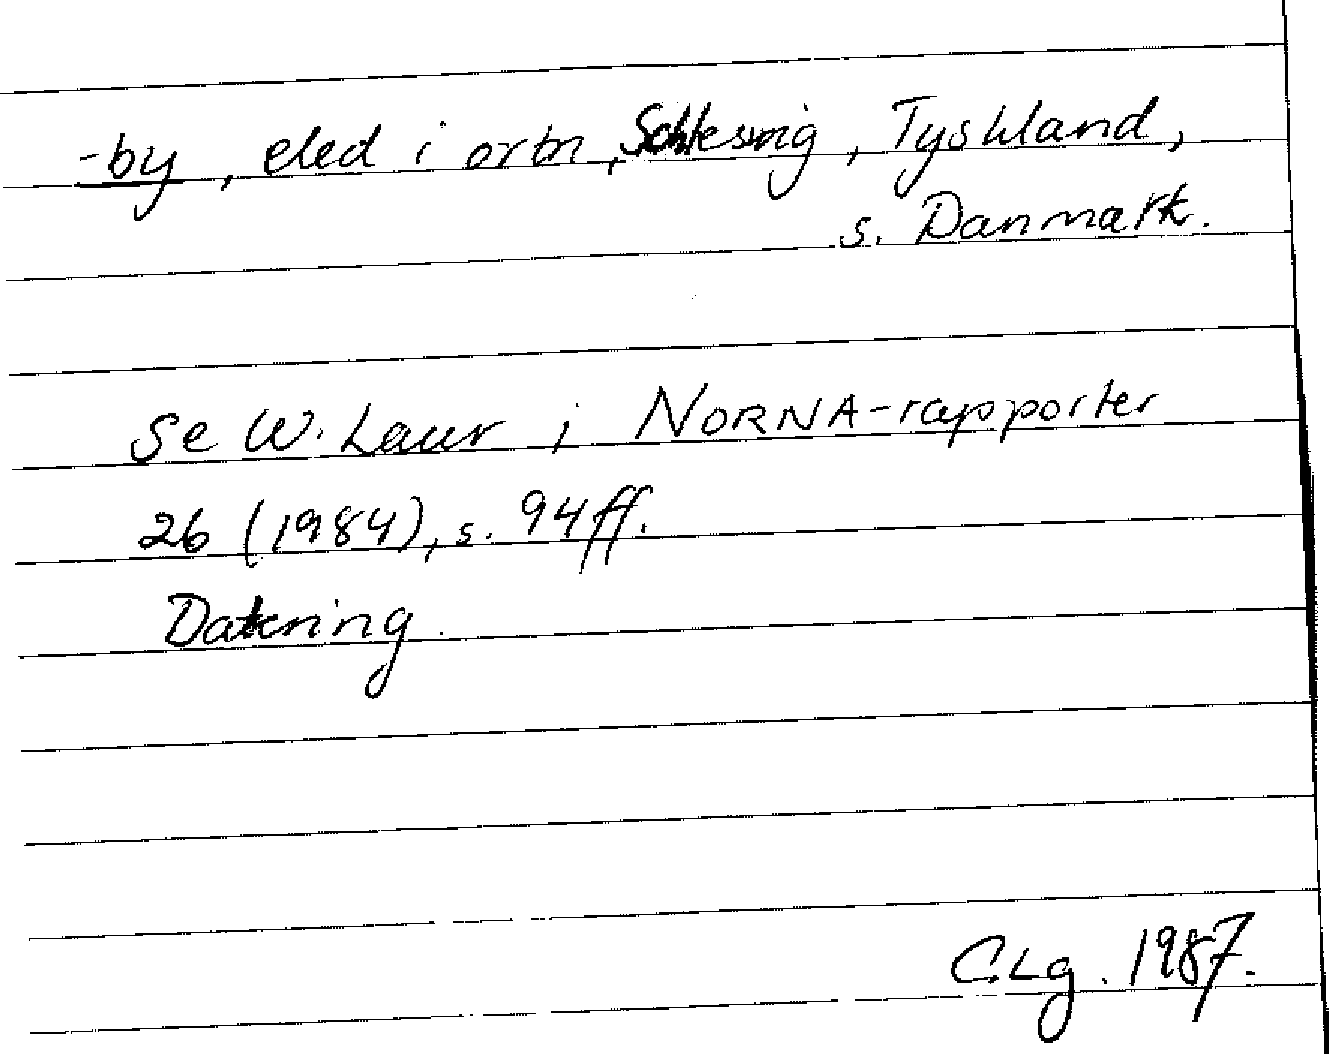 -by, eled i ortn, Schleswig, Tyskland,
s. Danmark.
Se W. Laur i NORNA-rapporter
26 (1984), s. 94ff.
Datering.
C.Lg. 1987.